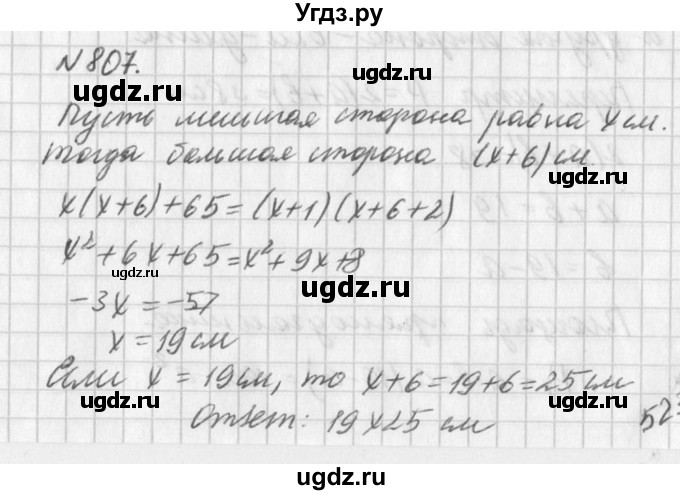 Угдз.ру
N 807.
Пусть меньшая сторона равна x см.
тогда большая сторона (x+6) см.
x(x+6)+65=(x+1)(x+6+2)
x²+6x+65=x²+9x+8
-3x=-57
x=19 см
Если x=19 см, то x+6=19+6=25 см
Ответ: 19 x 25 см
52
ugdz.ru
ugdz.ru
ugdz.ru
ugdz.ru
ugdz.ru
ugdz.ru
ugdz.ru
ugdz.ru
ugdz.ru